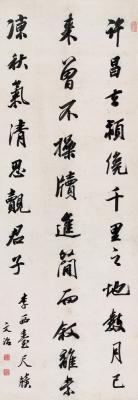 許昌古穎僥千里之地數月已
來曾不操牘進簡而敘離索
凍秋氣清思覿君子
李西臺尺牘
文治